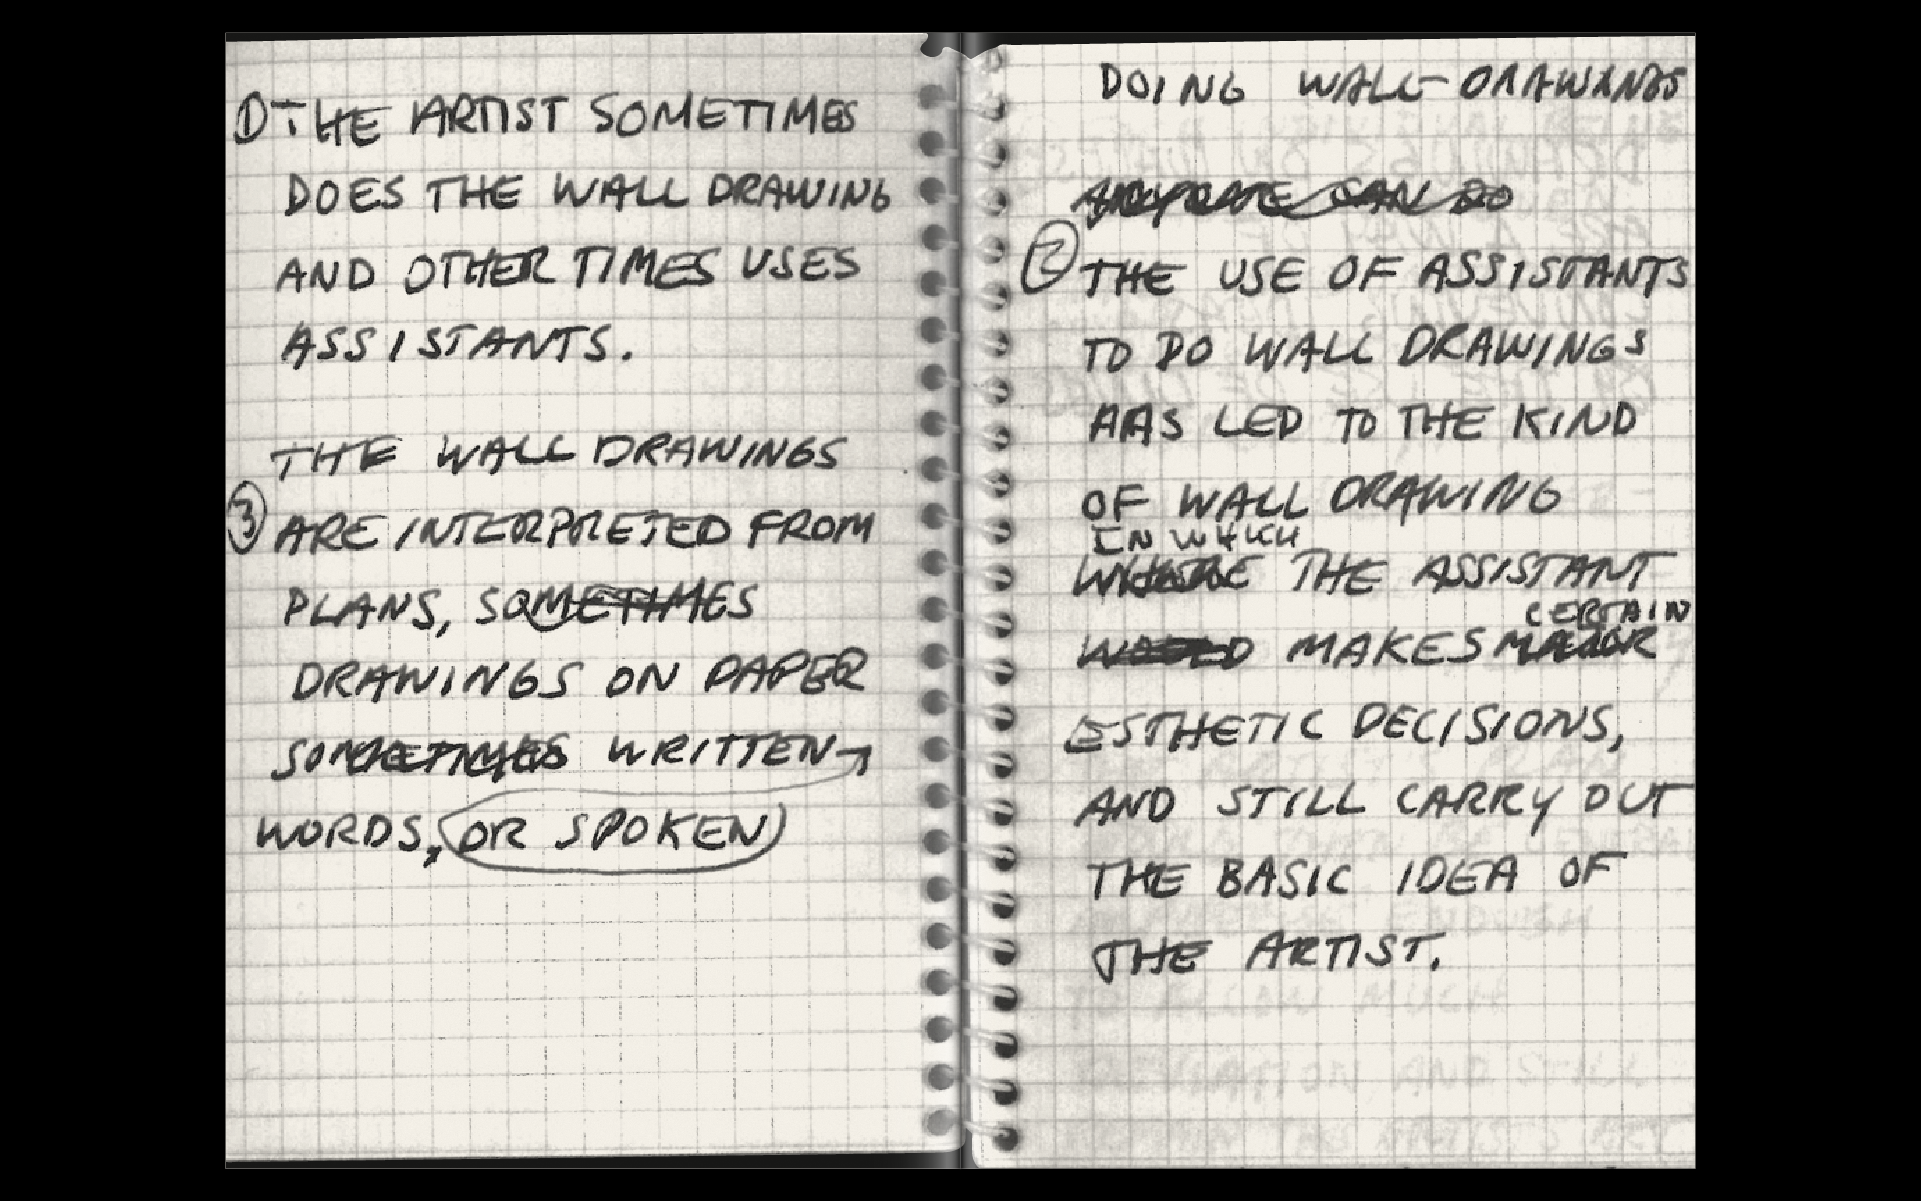 ① THE ARTIST SOMETIMES
DOES THE WALL DRAWING
AND OTHER TIMES USES
ASSISTANTS.
THE WALL DRAWINGS
③ ARE INTERPRETED FROM
PLANS, SOMETIMES
DRAWINGS ON PAPER
SOMETIMES WRITTEN
WORDS, OR SPOKEN
DOING WALL DRAWINGS
ANYONE CAN DO
② THE USE OF ASSISTANTS
TO DO WALL DRAWINGS
HAS LED TO THE KIND
OF WALL DRAWING
IN WHICH
WHERE THE ASSISTANT
CERTAIN
MAKES MAJOR
ESTHETIC DECISIONS,
AND STILL CARRY OUT
THE BASIC IDEA OF
THE ARTIST.